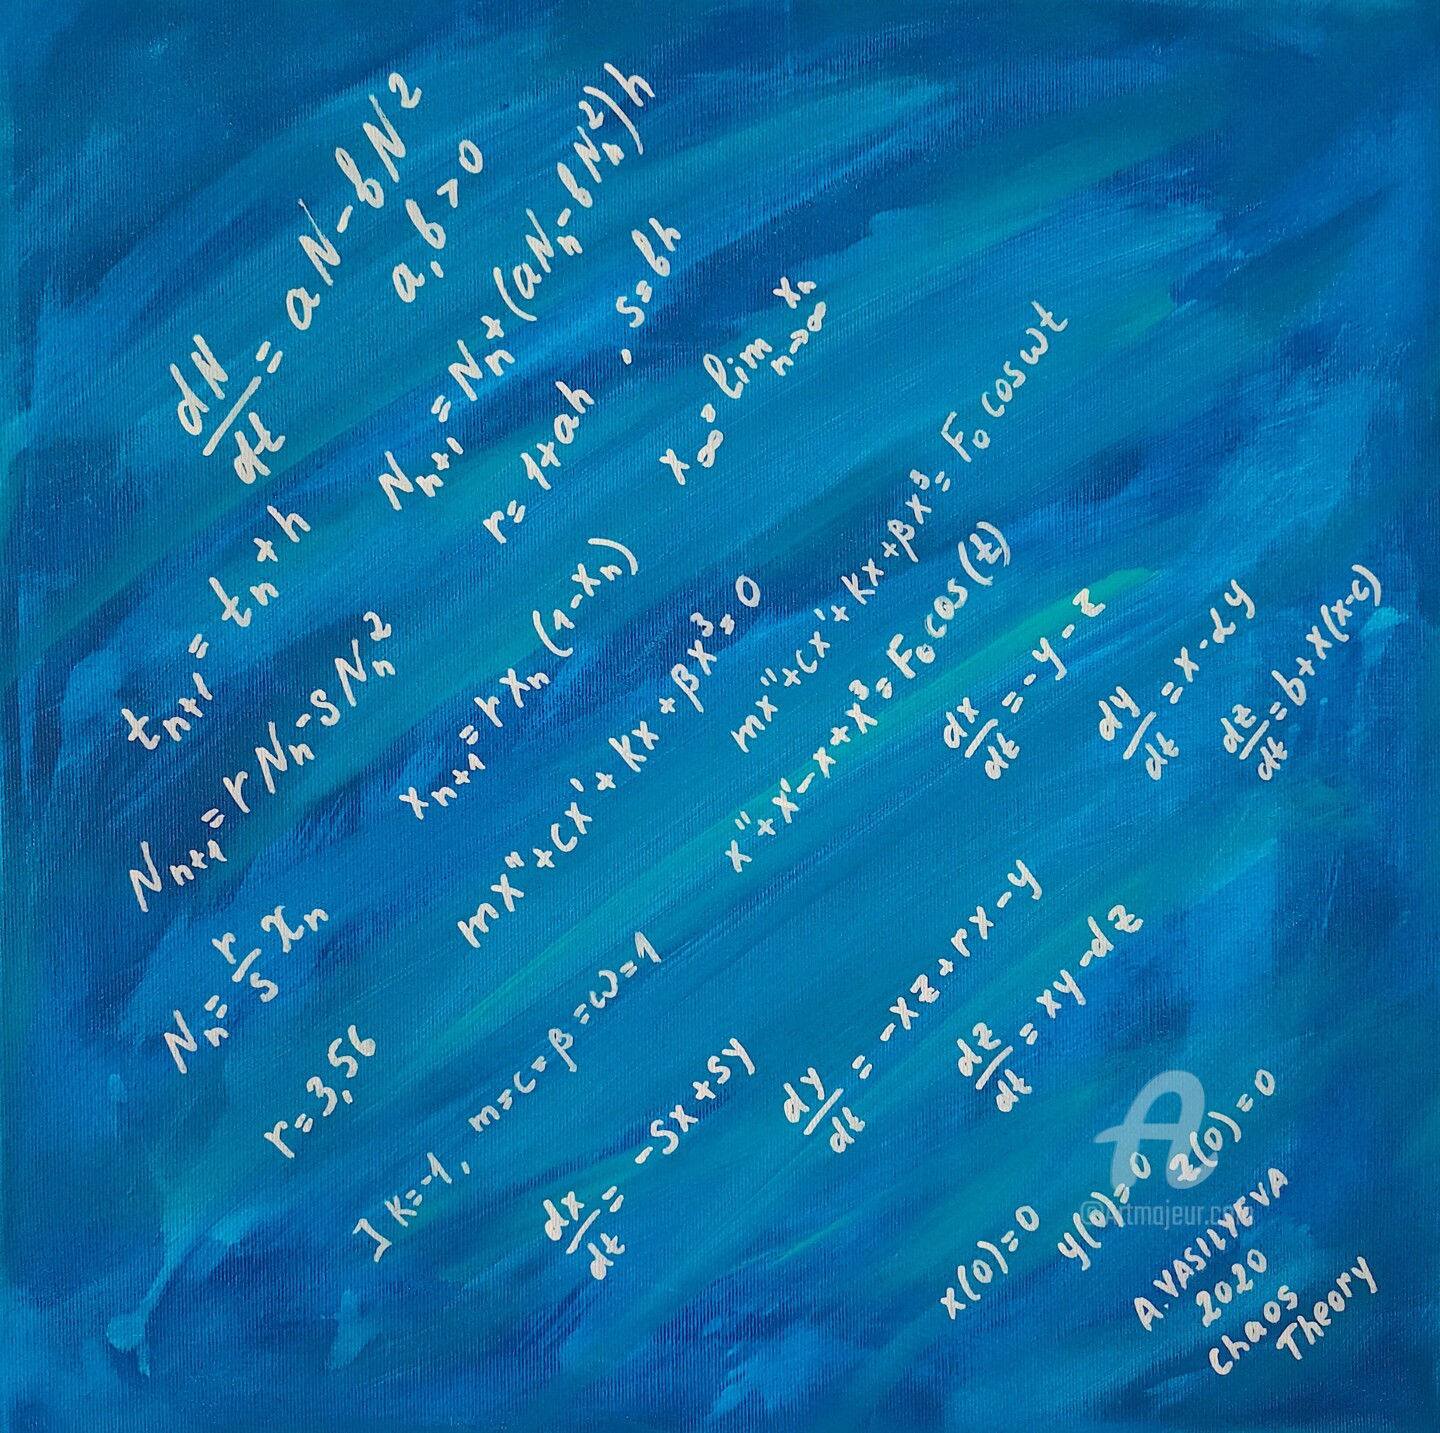 dN/dt = aN - bN²
a, b > 0
t_{n+1} = t_n + h
N_{n+1} = N_n + (aN_n - bN_n²)h
N_{n+1} = rN_n - sN_n²
r = 1 + ah , s = bh
N_n = r/s x_n
x_{n+1} = r x_n (1 - x_n)
x_∞ = lim_{n→∞} x_n
r = 3,56
mx'' + cx' + kx + βx³ = 0
mx'' + cx' + kx + βx³ = F₀ cos ωt
] k = -1 , m = c = β = ω = 1
x'' + x' - x + x³ = F₀ cos(t)
dx/dt = -y - z
dy/dt = x - dy
dz/dt = b + x(x - c)
dx/dt = -sx + sy
dy/dt = -xz + rx - y
dz/dt = xy - dz
x(0) = 0
y(0) = 0
z(0) = 0
A. VASILYEVA
2020
Chaos
Theory
A
@Artmajeur.com